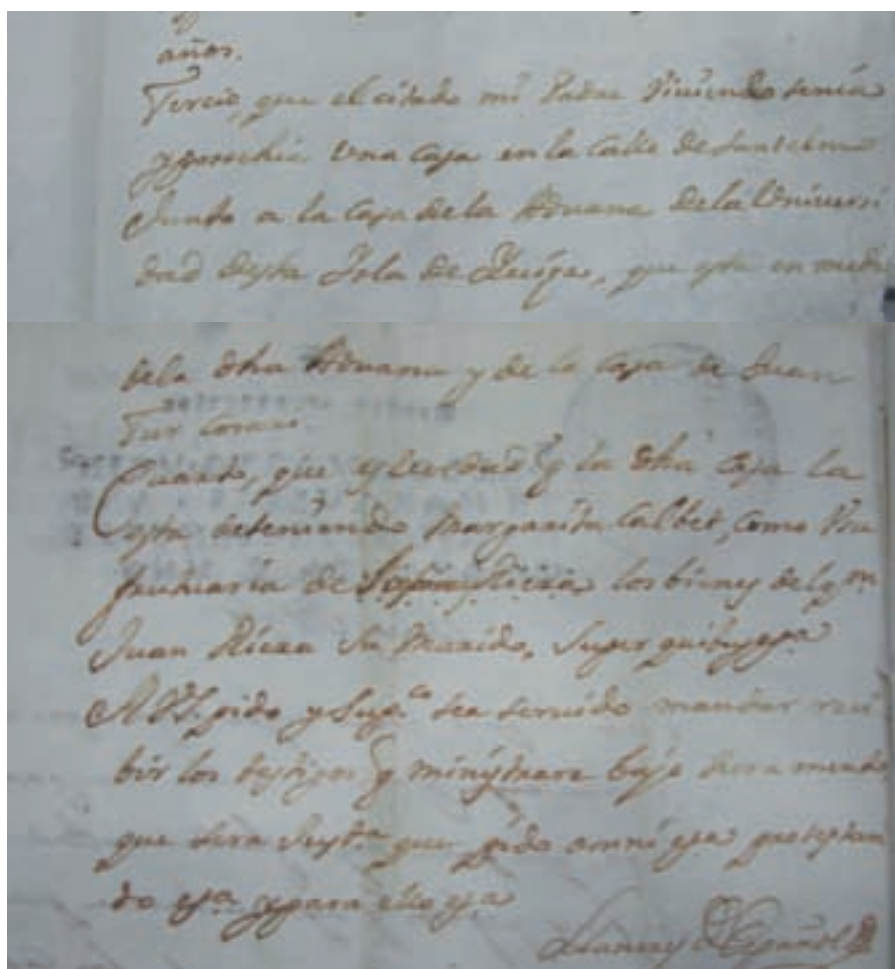 años.
Tercio, que el citado mi Padre viviendo tenia
y poschia Una Caza en la Calle de Santelmo
Junto a la Caza de la Aduana de la Universi
dad desta Isla de Iviza, que esta en medi
dela dha Aduana y de la Caza de Juan
Tur
Cuarto, que es verdad q la dha Caza la
esta deteniendo Margarita Calbet, como Usu
fructuaria de los bienes del qm
Juan Riera Su Marido, Super quibus
A VS. pido y Supco sea servido mandar reci
bir los testigos q ministrare bajo Juramento
que sera Justa que pido omni protestan
do y para ello
Español